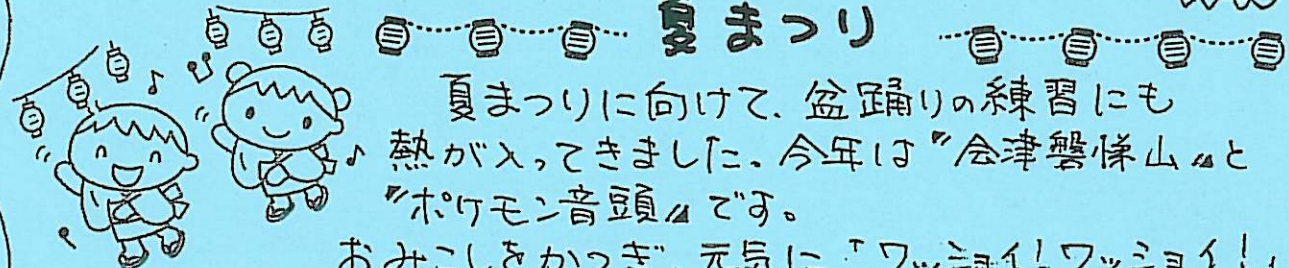 夏まつり
夏まつりに向けて、盆踊りの練習にも
熱が入ってきました。今年は〝会津磐梯山〟と
〝ポケモン音頭〟です。
おみこしをかつぎ、元気に「ワッショイ！ワッショイ！」